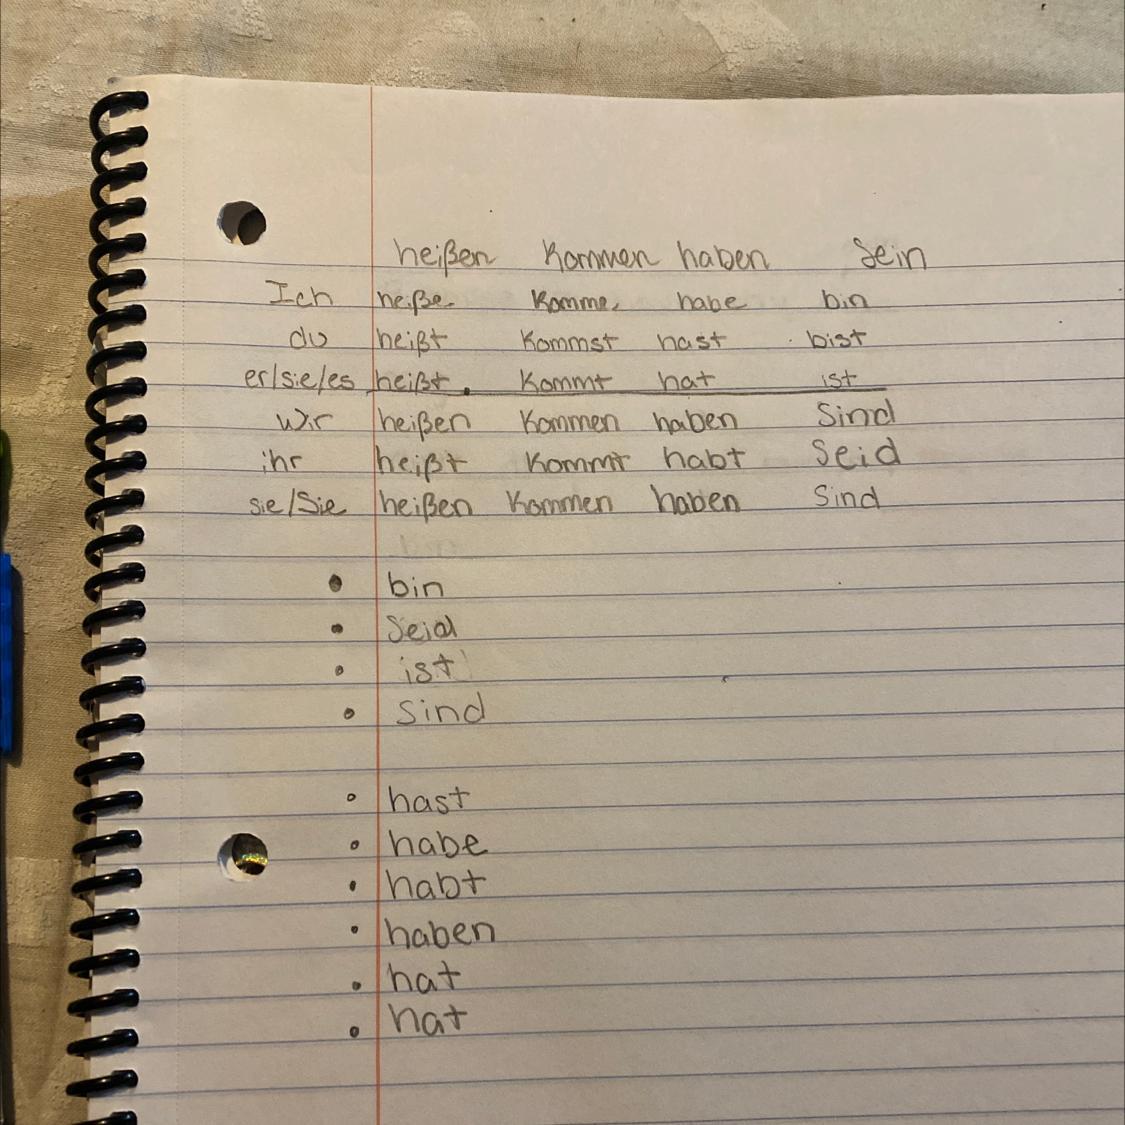 heißen kommen haben sein
Ich heiße komme habe bin
du heißt kommst hast bist
er/sie/es heißt kommt hat ist
wir heißen kommen haben sind
ihr heißt kommt habt seid
sie/Sie heißen kommen haben sind
• bin
• seid
• ist
• sind
• hast
• habe
• habt
• haben
• hat
• hat